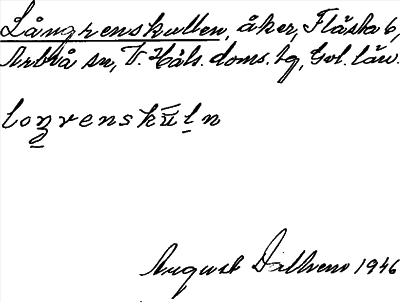 Långrenskullen, åker, Flästa 6,
Arbrå sn, V. Häls. doms. tg, Gvl. län.
loŋrenskūln
August Dallven 1946